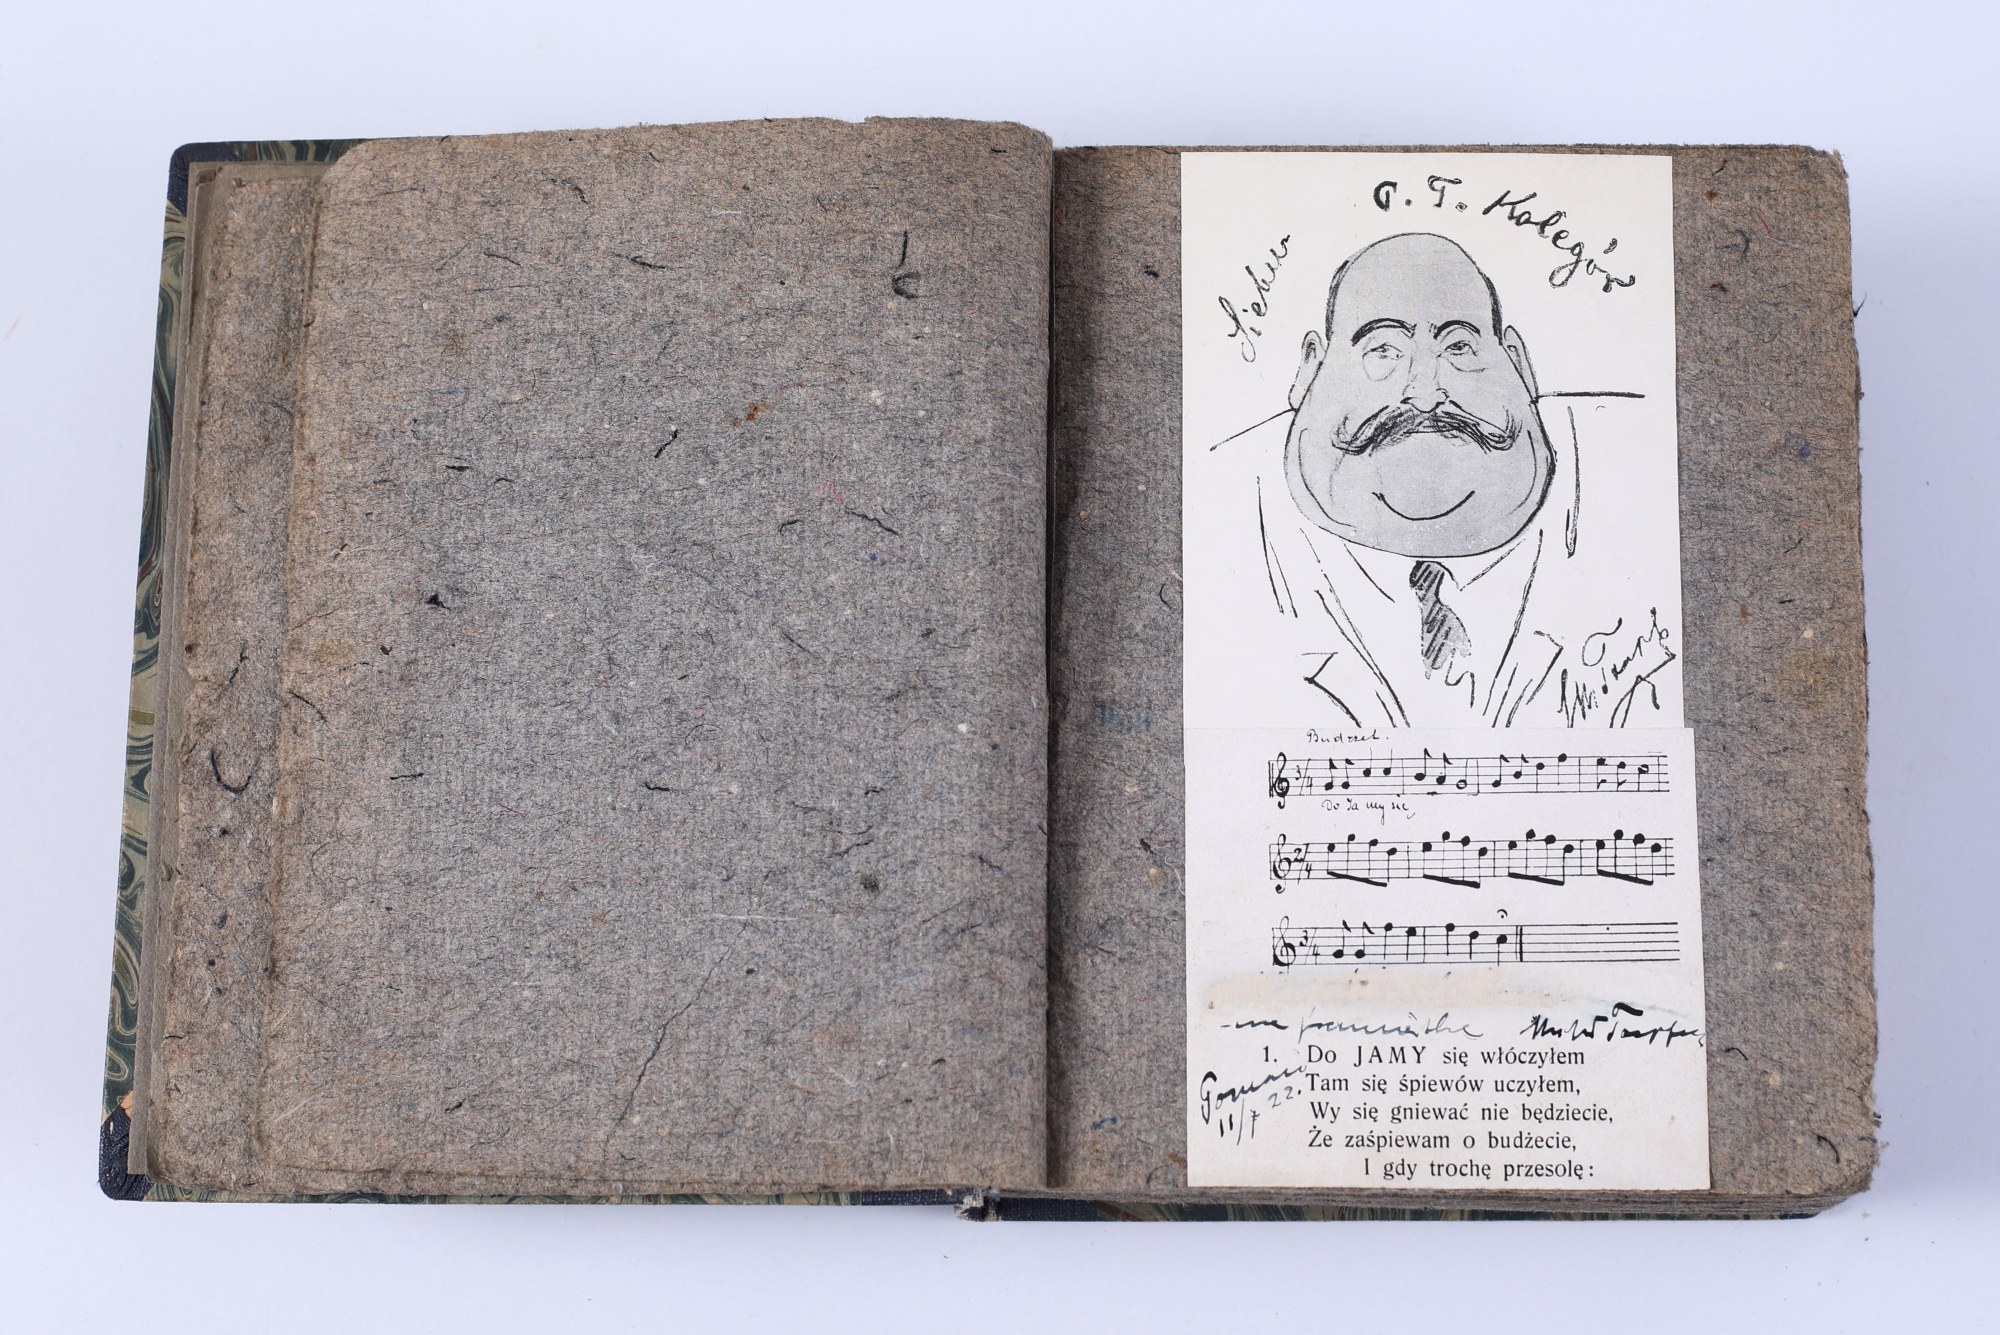 C. T. Kolegów
Sieber
Budżet.
3/4
Do Ja my się
2/4
3/4
na pamiątkę
1. Do JAMY się włóczyłem
Tam się śpiewów uczyłem,
Wy się gniewać nie będziecie,
Że zaśpiewam o budżecie,
I gdy trochę przesolę:
11/7 22.